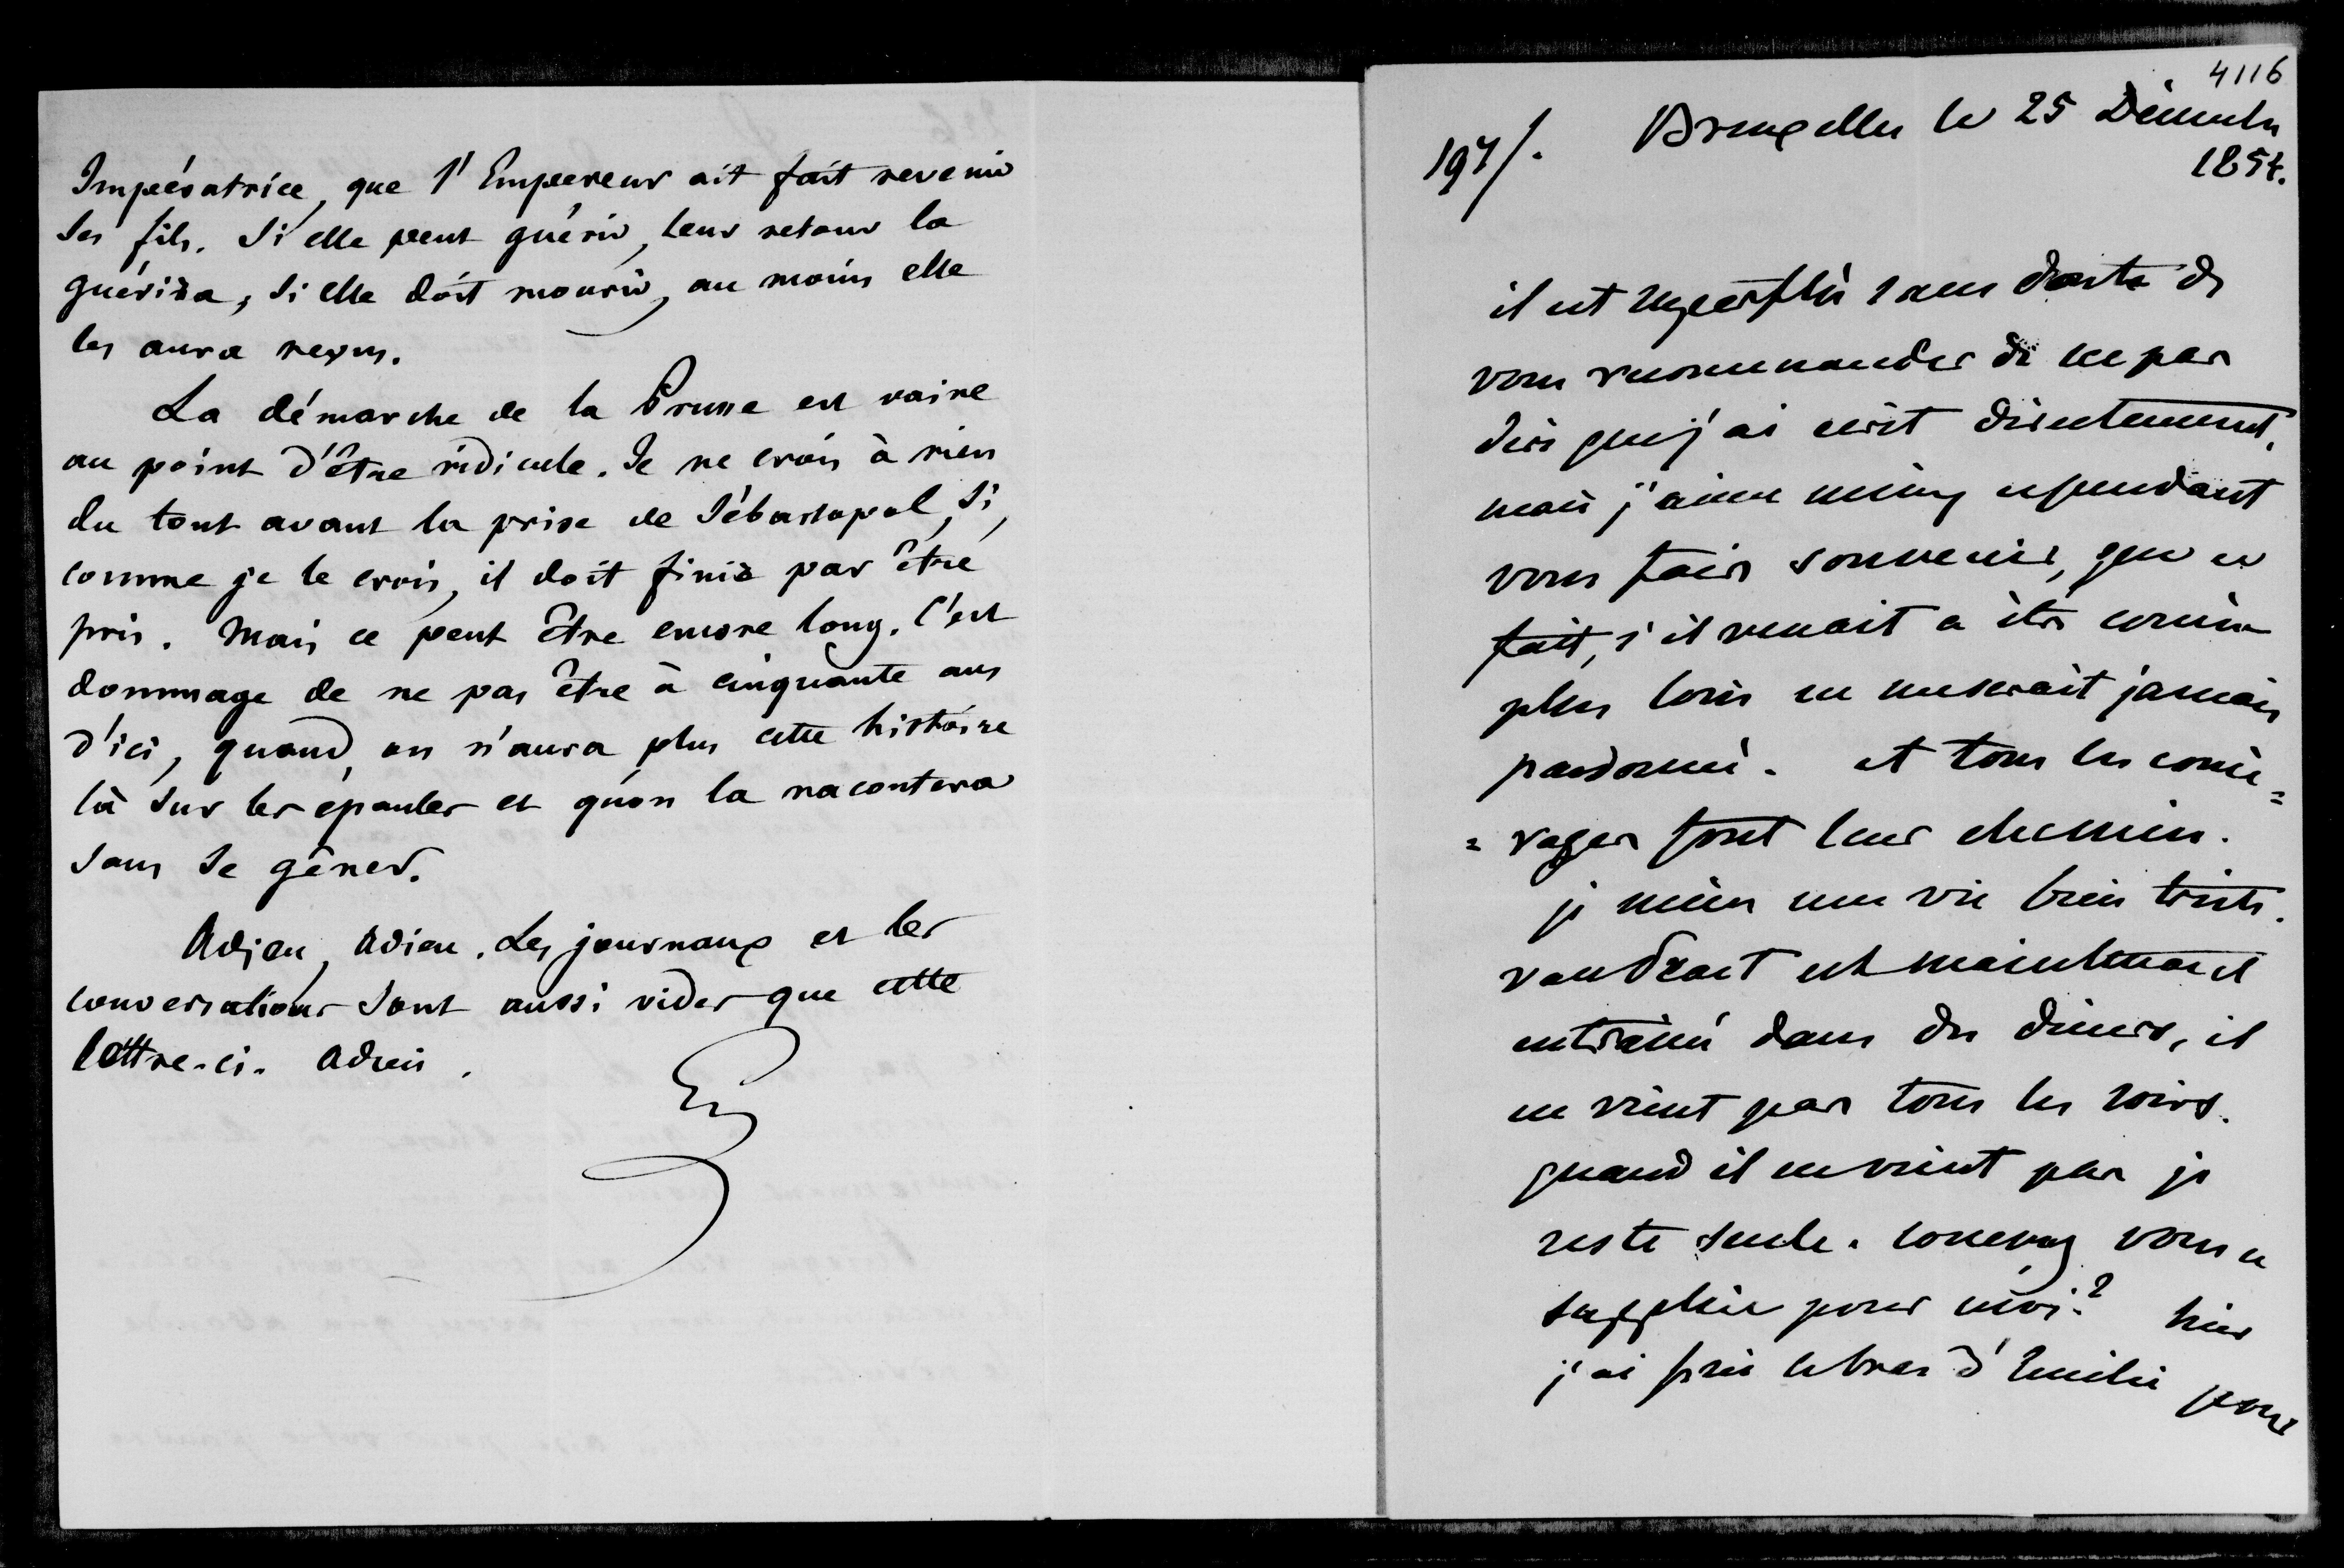 Impératrice, que l'Empereur ait fait revenir
ses fils. Si elle peut guérir, leur retour la
guérira, si elle doit mourir, au moins elle
les aura revus.
La démarche de la Prusse est vaine
au point d'être ridicule. Je ne crois à rien
du tout avant la prise de Sébastopol, si,
comme je le crois, il doit finir par être
pris. Mais ce peut être encore long. C'est
dommage de ne pas être à cinquante ans
d'ici, quand on n'aura plus cette histoire
là sur les épaules et qu'on la racontera
sans se gêner.
Adieu, Adieu. Les journaux et les
conversations sont aussi vides que cette
lettre-ci. Adieu.
4116
197/. Bruxelles le 25 Décembre
1854.
il est superflu sans doute de
vous recommander de ne pas
dire que j'ai écrit directement,
mais j'aime mieux cependant
vous faire souvenir, que ce
fait, s'il venait a être connu
plus loin ne me serait jamais
pardonné. et tous les comè=
=rages font leur chemin.
je mène une vie bien triste.
vandraet est maintenant
entrainé dans des diners, il
ne vient pas tous les soirs.
quand il ne vient pas je
reste seule. concevez vous ce
supplice pour moi? hier
j'ai pris le bras d'Emilie pour